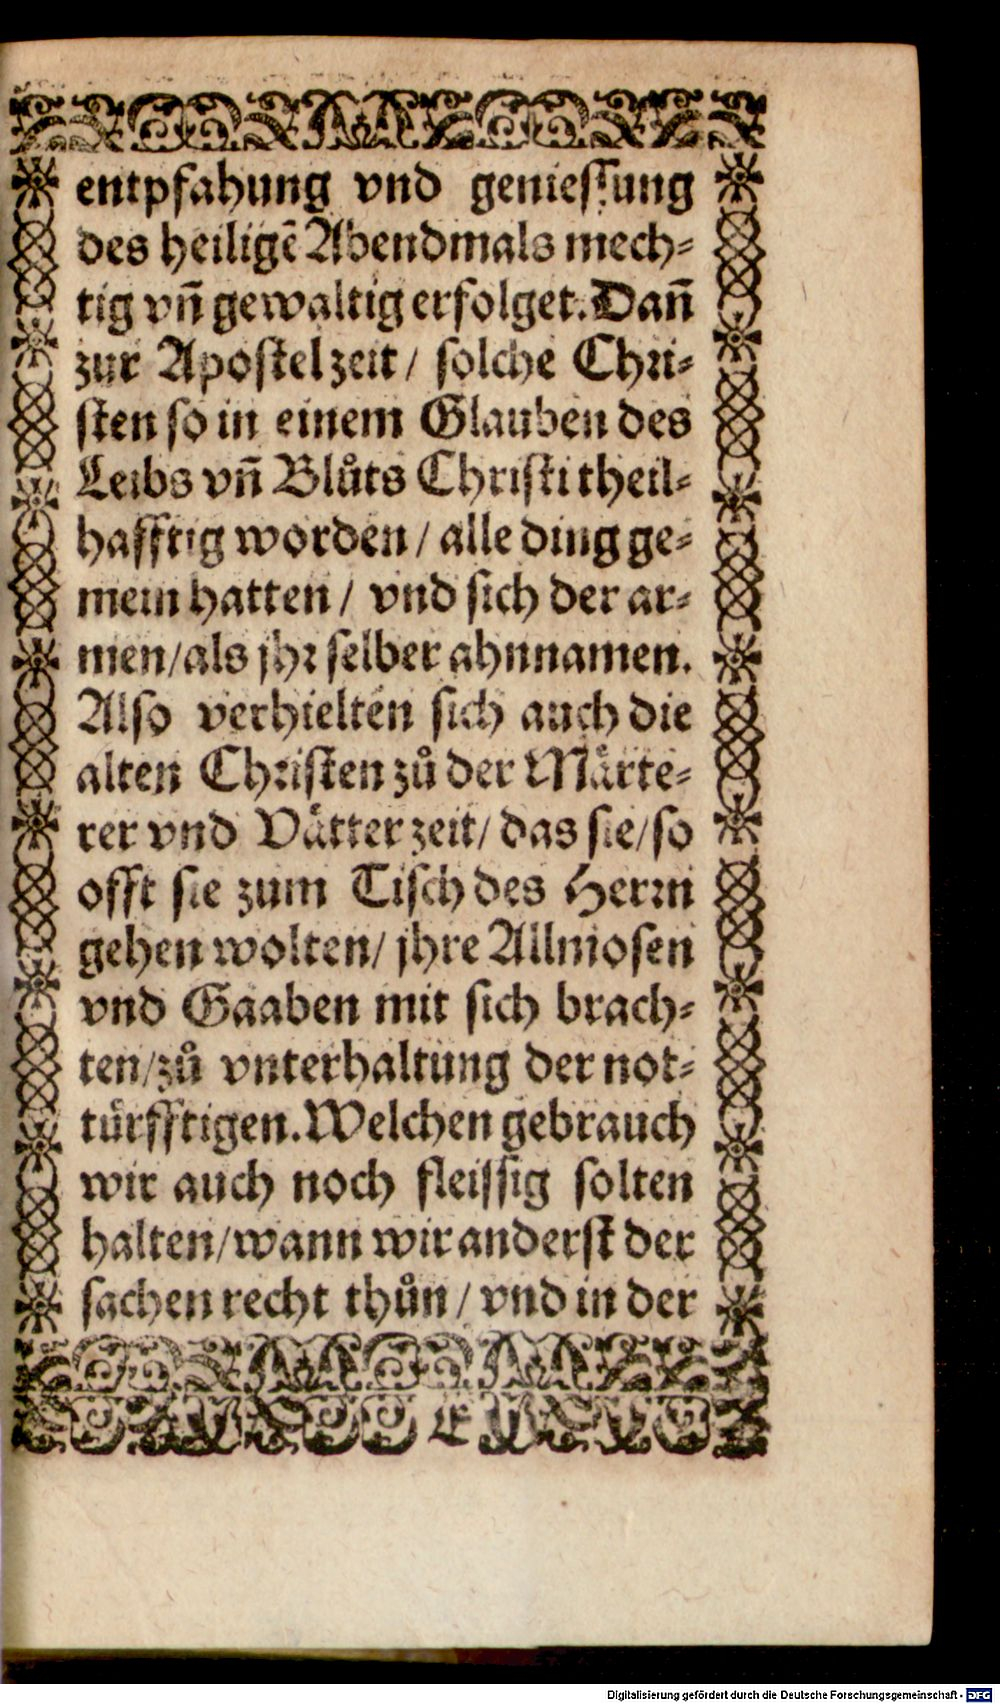 entpfahung vnd geniessung
des heiligē Abendmals mech⸗
tig vñ gewaltig erfolget. Dañ
zur Apostel zeit / solche Chri⸗
sten so in einem Glauben des
Leibs vñ Blůts Christi theil⸗
hafftig worden / alle ding ge⸗
mein hatten / vnd sich der ar⸗
men / als jhr selber ahnnamen.
Also verhielten sich auch die
alten Christen zů der Märte⸗
rer vnd Vätter zeit / das sie / so
offt sie zum Tisch des Herrn
gehen wolten / jhre Allmosen
vnd Gaaben mit sich brach⸗
ten / zů vnterhaltung der not⸗
türfftigen. Welchen gebrauch
wir auch noch fleissig solten
halten / wann wir anderst der
sachen recht thůn / vnd in der
E
Digitalisierung gefördert durch die Deutsche Forschungsgemeinschaft - DFG